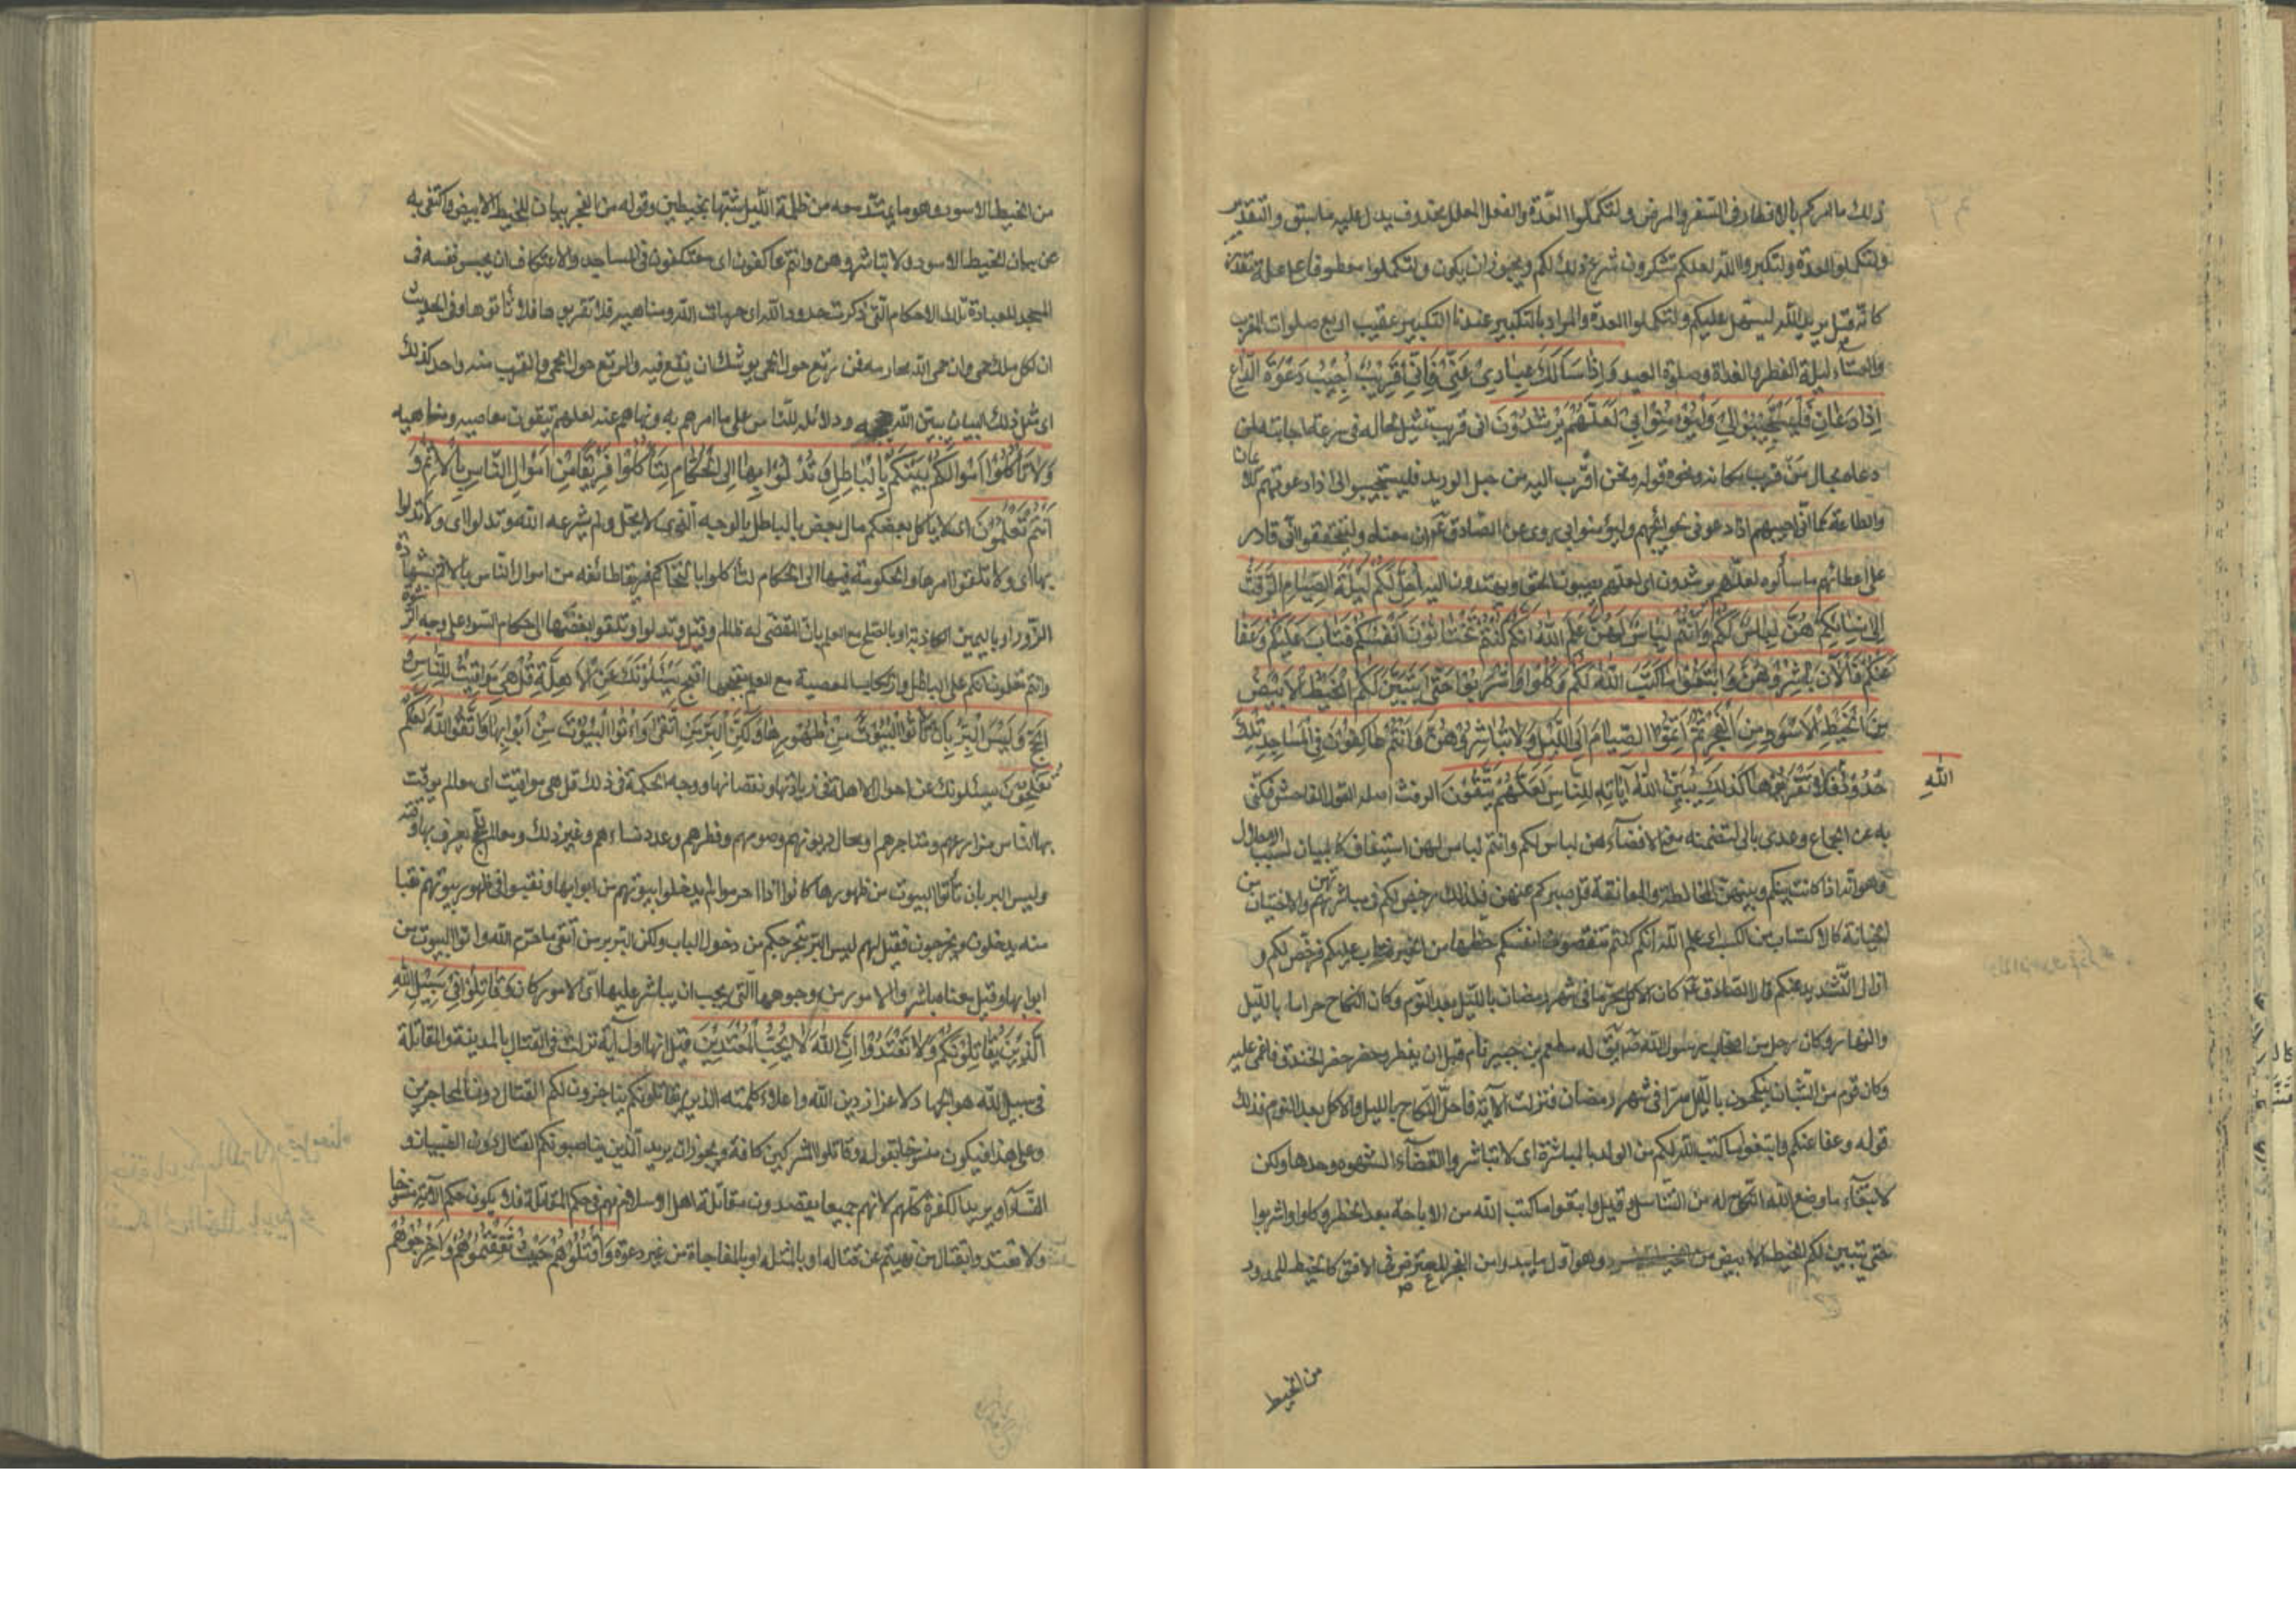 ذلك ما امركم بالافطار فى السفر والمرض ولتكملوا العدّة والفعل المعلل محذوف يدل عليه ما سبق والتقدير
ولتكملوا العدة ولتكبروا الله لعلكم تشكرون شرع ذلك لكم ويجوز ان يكون ولتكملوا معطوفا على علة مقدّرة
كانّه قيل يريد الله ليسهل عليكم ولتكملوا العدة والمراد بالتكبير عندنا التكبير عقيب اربع صلوات المغرب
والعشآء ليلة الفطر والغداة وصلوة العيد وَاِذَا سَاَلَكَ عِبَادِى عَنِّى فَاِنِّى قَرِيبٌ اُجِيبُ دَعْوَةَ الدَّاعِ
اِذَا دَعَانِ فَلْيَسْتَجِيبُوا لِى وَلْيُؤْمِنُوا بِى لَعَلَّهُمْ يَرْشُدُونَ انى قريب تمثيل لحاله فى سرعة اجابته لمن
دعاه بحال مَنْ قرب مكانه ونحوه قوله ونحن أقرب اليه من حبل الوريد فليستجيبوا لى اذا دعوتهم للايمان
والطاعة كما انّى اجيبهم اذا دعونى لحوائجهم وليؤمنوا بى روى عن الصّادق ع ان معناه وليتحققوا انّى قادر
على اعطائهم ما سألوه لعلّهم يرشدون اى لعلهم يصيبون الحق ويهتدون اليه اُحِلَّ لَكُمْ لَيْلَةَ الصِّيَامِ الرَّفَثُ
اِلىٰ نِسَائِكُمْ هُنَّ لِبَاسٌ لَكُمْ وَاَنْتُمْ لِبَاسٌ لَهُنَّ عَلِمَ اللهُ اَنَّكُمْ كُنْتُمْ تَخْتَانُونَ اَنْفُسَكُمْ فَتَابَ عَلَيْكُمْ وَعَفَا
عَنْكُمْ فَالْاٰنَ بَاشِرُوهُنَّ وَابْتَغُوا مَا كَتَبَ اللهُ لَكُمْ وَكُلُوا وَاشْرَبُوا حَتّٰى يَتَبَيَّنَ لَكُمُ الْخَيْطُ الْاَبْيَضُ
مِنَ الْخَيْطِ الْاَسْوَدِ مِنَ الْفَجْرِ ثُمَّ اَتِمُّوا الصِّيَامَ اِلَى اللَّيْلِ وَلَا تُبَاشِرُوهُنَّ وَاَنْتُمْ عَاكِفُونَ فِى الْمَسَاجِدِ تِلْكَ
حُدُودُ فَلَا تَقْرَبُوهَا كَذٰلِكَ يُبَيِّنُ اللهُ آيَاتِهِ لِلنَّاسِ لَعَلَّهُمْ يَتَّقُونَ الرفث اصله القول الفاحش فكنّى
اللهِ
به عن الجماع وعدى بالى لتضمنه معنى الافضآء هن لباس لكم وانتم لباس لهن استيناف كالبيان لسبب الاحلال
وهو انّه اذا كانت بينكم وبينهنّ المخالطة والمعانقة قل صبركم عنهن فلذلك رخص لكم فى مباشرتهنّ والاختيان من
الخيانة كالاكتساب من الكسب علم الله انكم كنتم تنقصون انفسكم حظها من الخير فتاب عليكم فرخّص لكم و
ازال التّشديد عنكم قال الصّادق ع كان الاكل محرّما فى شهر رمضان بالليل بعد النّوم وكان النكاح حراما بالليل
والنهار وكان رجل من اصحاب رسول الله ص يقال له مطعم بن جبير نام قبل ان يفطر وحضر حفر الخندق فاغمى عليه
وكان قوم من الشّبان ينكحون بالليل سرّا فى شهر رمضان فنزلت الآية فاحلّ النّكاح بالليل والاكل بعد النوم فذلك
قوله وعفا عنكم وابتغوا ما كتب الله لكم من الولد بالمباشرة اى لا تباشروا لقضآء الشهوة وحدها ولكن
لابتغآء ما وضع الله النكاح له من التناسل وقيل وابتغوا ما كتب الله من الاباحة بعد الحظر وكلوا واشربوا
حتى يتبين لكم الخيط الابيض من وهو اوّل ما يبدو من الفجر المعترض فى الافق كالخيط الممدود
من الخيط
من الخيط الاسود وهو ما يمتد معه من ظلمة الليل شبّها بخيطين وقوله من الفجر بيان للخيط الابيض واكتفى به
عن بيان الخيط الاسود ولا تباشروهن وانتم عاكفون اى معتكفون فى المساجد والاعتكاف ان يحبس نفسه فى
المسجد للعبادة تلك الاحكام التى ذكرت حدود الله اى حرمات الله ومناهيه فلا تقربوها فلا تأتوها وفى الحديث
ان لكل ملك حمى وان حمى الله محارمه فمن رتع حول الحمى يوشك ان يقع فيه والرتع حول الحمى والقرب منه واحد كذلك
اى مثل ذلك البيان يبيّن الله ودلائله للناس على ما امرهم به ونهاهم عنه لعلهم يتقون معاصيه ومناهيه
وَلَا تَأْكُلُوا اَمْوَالَكُمْ بَيْنَكُمْ بِالْبَاطِلِ وَتُدْلُوا بِهَا اِلَى الْحُكَّامِ لِتَأْكُلُوا فَرِيقًا مِنْ اَمْوَالِ النَّاسِ بِالْاِثْمِ وَ
اَنْتُمْ تَعْلَمُونَ اى لا ياكل بعضكم مال بعض بالباطل بالوجه الذى لا يحل ولم يشرعه الله وتدلوا اى ولا تدلوا
بها اى ولا تلقوا امرها والحكومة فيها الى الحكام لتأكلوا بالتحاكم فريقا طائفه من اموال الناس بالاثم بشهادة
الزّور او باليمين الكاذبة او بالصلح مع العلم بان المقضى له ظالم وقيل وتدلوا وتلقوا بعضها الى حكام السّوء على وجه الرشوة
وانتم تعلمون انكم على الباطل وارتكاب المعصية مع العلم بقبحها اقبح يَسْئَلُونَكَ عَنِ الْاَهِلَّةِ قُلْ هِىَ مَوَاقِيتُ لِلنَّاسِ وَ
الْحَجِّ وَلَيْسَ الْبِرُّ بِاَنْ تَأْتُوا الْبُيُوتَ مِنْ ظُهُورِهَا وَلٰكِنَّ الْبِرَّ مَنِ اتَّقىٰ وَأْتُوا الْبُيُوتَ مِنْ اَبْوَابِهَا وَاتَّقُوا اللهَ لَعَلَّكُمْ
تُفْلِحُونَ يسئلونك عن احوال الاهلة فى زيادتها ونقصانها ووجه الحكمة فى ذلك قل هى مواقيت اى معالم يوقّت
بها الناس مزارعهم ومتاجرهم ومحال ديونهم وصومهم وفطرهم وعدد نساءهم وغير ذلك ومعالم للحج يعرف بها وقته
وليس البر بان تأتوا البيوت من ظهورها كانوا اذا احرموا لم يدخلوا بيوتهم من ابوابها ونقبوا فى ظهور بيوتهم نقبا
منه يدخلون ويخرجون فقيل لهم ليس البرّ بتحرجكم من دخول الباب ولكن البر بر من اتقى ما حرّم الله واتوا البيوت من
ابوابها وقيل معناه باشروا الامور من وجوهها التى يجب ان يباشر عليها اىّ الامور كان وَقَاتِلُوا فِى سَبِيلِ اللهِ
الَّذِينَ يُقَاتِلُونَكُمْ وَلَا تَعْتَدُوا اِنَّ اللهَ لَا يُحِبُّ الْمُعْتَدِينَ قيل انها اول آية نزلت فى القتال بالمدينة والمقاتلة
فى سبيل الله هو الجهاد لاعزاز دين الله واعلاء كلمته الذين يقاتلونكم يناجزونكم القتال دون المحاجزين
وعلى هذا فيكون منسوخا بقوله وقاتلوا المشركين كافة ويجوز ان يريد الذين يناصبونكم القتال دون الصبيان و
النّساء او يريد الكفرة كلهم لانهم جميعا يقصدون مقاتلة اهل الاسلام فهم فى حكم المقاتلة فلا يكون حكم الآية منسوخا
ولا تعتدوا بقتال من نهيتم عن قتاله او بالمثلة او بالمفاجاة من غير دعوة وَاقْتُلُوهُمْ حَيْثُ ثَقِفْتُمُوهُمْ وَاَخْرِجُوهُمْ